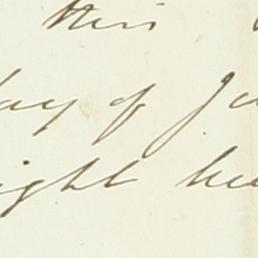 this
day of Ju
ight hu